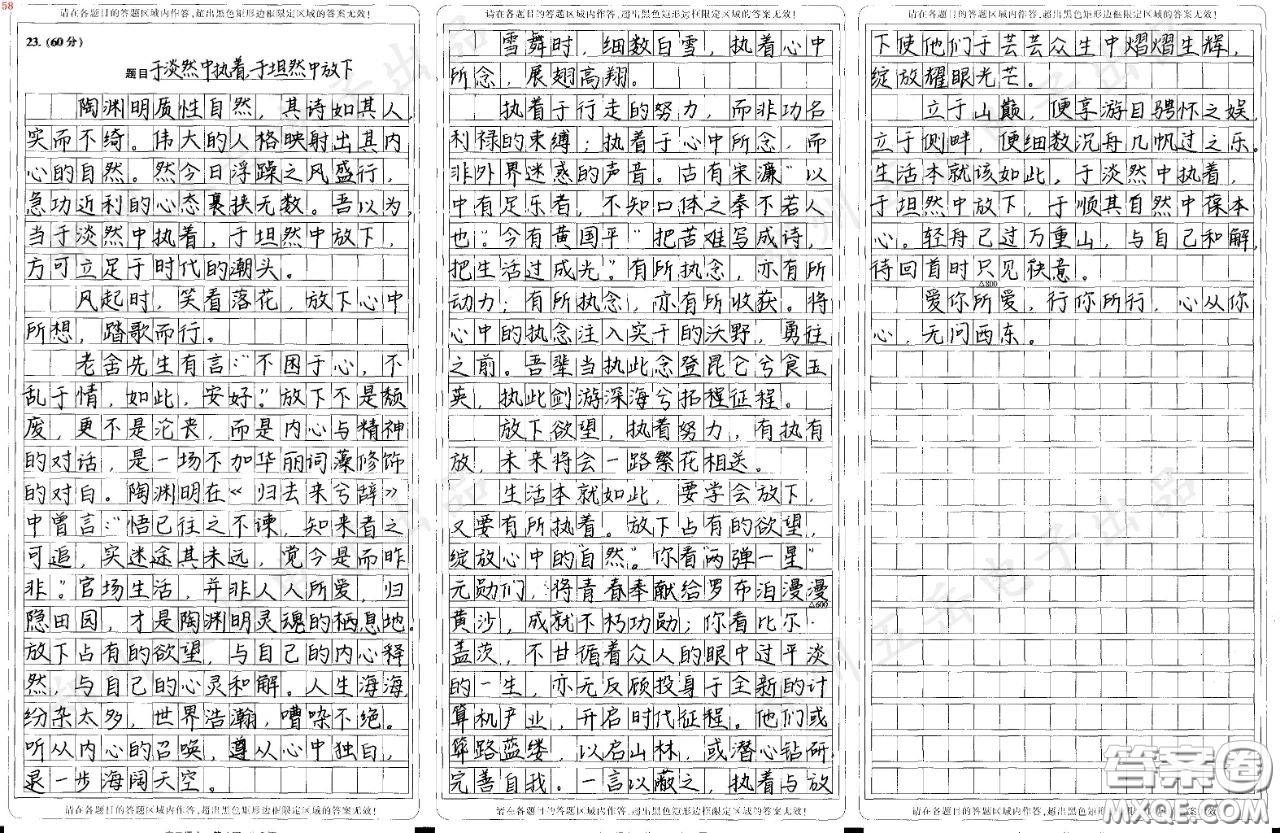 58
请在各题目的答题区域内作答,超出黑色矩形边框限定区域的答案无效!
23.(60分)
题目 于淡然中执着,于坦然中放下
陶渊明质性自然，其诗如其人，
实而不绮。伟大的人格映射出其内
心的自然。然今日浮躁之风盛行，
急功近利的心态裹挟无数。吾以为，
当于淡然中执着，于坦然中放下，
方可立足于时代的潮头。
风起时，笑看落花，放下心中
所想，踏歌而行。
老舍先生有言：“不困于心，不
乱于情，如此，安好。”放下不是颓
废，更不是沦丧，而是内心与精神
的对话，是一场不加华丽词藻修饰
的对白。陶渊明在《归去来兮辞》
中曾言：“悟已往之不谏，知来者之
可追，实迷途其未远，觉今是而昨
非。”官场生活，并非人人所爱，归
隐田园，才是陶渊明灵魂的栖息地。
放下占有的欲望，与自己的内心释
然，与自己的心灵和解。人生海海，
纷杂太多，世界浩瀚，嘈杂不绝。
听从内心的召唤，遵从心中独白，
退一步海阔天空。
请在各题目的答题区域内作答,超出黑色矩形边框限定区域的答案无效!
请在各题目的答题区域内作答,超出黑色矩形边框限定区域的答案无效!
雪舞时，细数白雪，执着心中
所念，展翅高翔。
执着于行走的努力，而非功名
利禄的束缚；执着于心中所念，而
非外界迷惑的声音。古有宋濂“以
中有足乐者，不知口体之奉不若人
也”。今有黄国平“把苦难写成诗，
把生活过成光”。有所执念，亦有所
动力；有所执念，亦有所收获。将
心中的执念注入实干的沃野，勇往
之前。吾辈当执此念登昆仑兮食玉
英，执此剑游深海兮拓程征程。
放下欲望，执着努力，有执有
放，未来将会一路繁花相送。
生活本就如此，要学会放下，
又要有所执着。放下占有的欲望，
绽放心中的“自然”。你看“两弹一星”
元勋们，将青春奉献给罗布泊漫漫
△600
黄沙，成就不朽功勋；你看比尔·
盖茨，不甘循着众人的眼中过平淡
的一生，亦无反顾投身于全新的计
算机产业，开启时代征程。他们或
筚路蓝缕，以启山林，或潜心钻研，
完善自我。一言以蔽之，执着与放
请在各题目的答题区域内作答,超出黑色矩形边框限定区域的答案无效!
请在各题目的答题区域内作答,超出黑色矩形边框限定区域的答案无效!
下使他们于芸芸众生中熠熠生辉，
绽放耀眼光芒。
立于山巅，便享游目骋怀之娱，
立于侧畔，便细数沉舟几帆过之乐。
生活本就该如此，于淡然中执着，
于坦然中放下，于顺其自然中葆本
心。轻舟已过万重山，与自己和解，
待回首时只见秋意。
△800
爱你所爱，行你所行，心从你
心，无问西东。
请在各题目的答题区域内作答,超出黑色矩形边框限定区域的答案无效!
答案圈
MXQE.COM